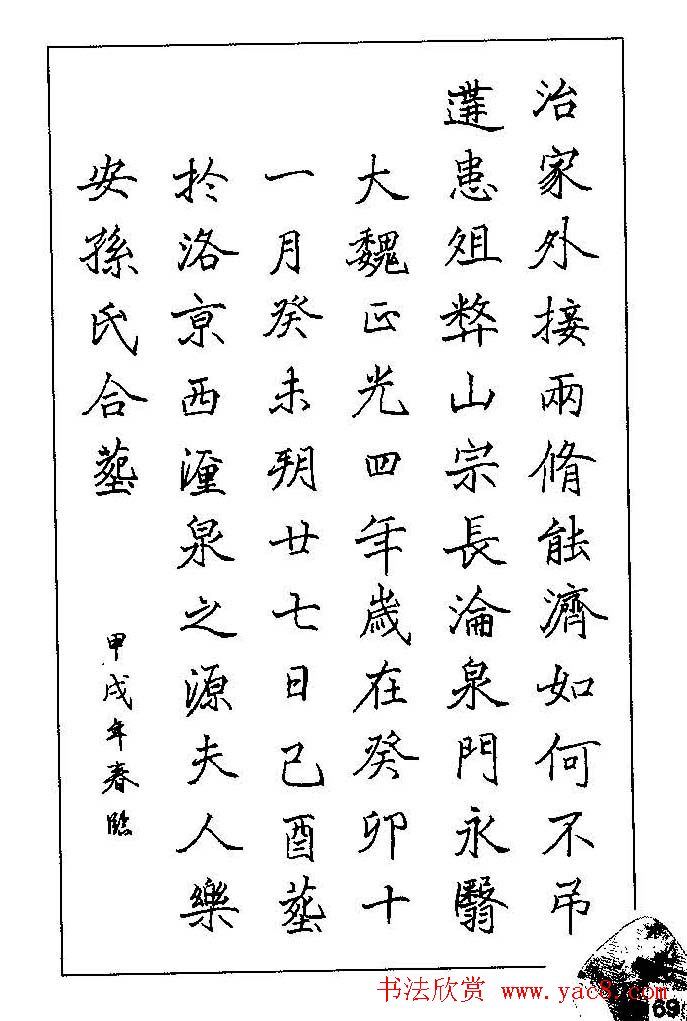 治家外接兩脩能濟如何不弔
遘患俎弊山宗長淪泉門永翳
大魏正光四年歲在癸卯十
一月癸未朔廿七日己酉塟
於洛京西瀍泉之源夫人樂
安孫氏合塟
甲戌年春臨
书法欣赏 www.yac8.com
69